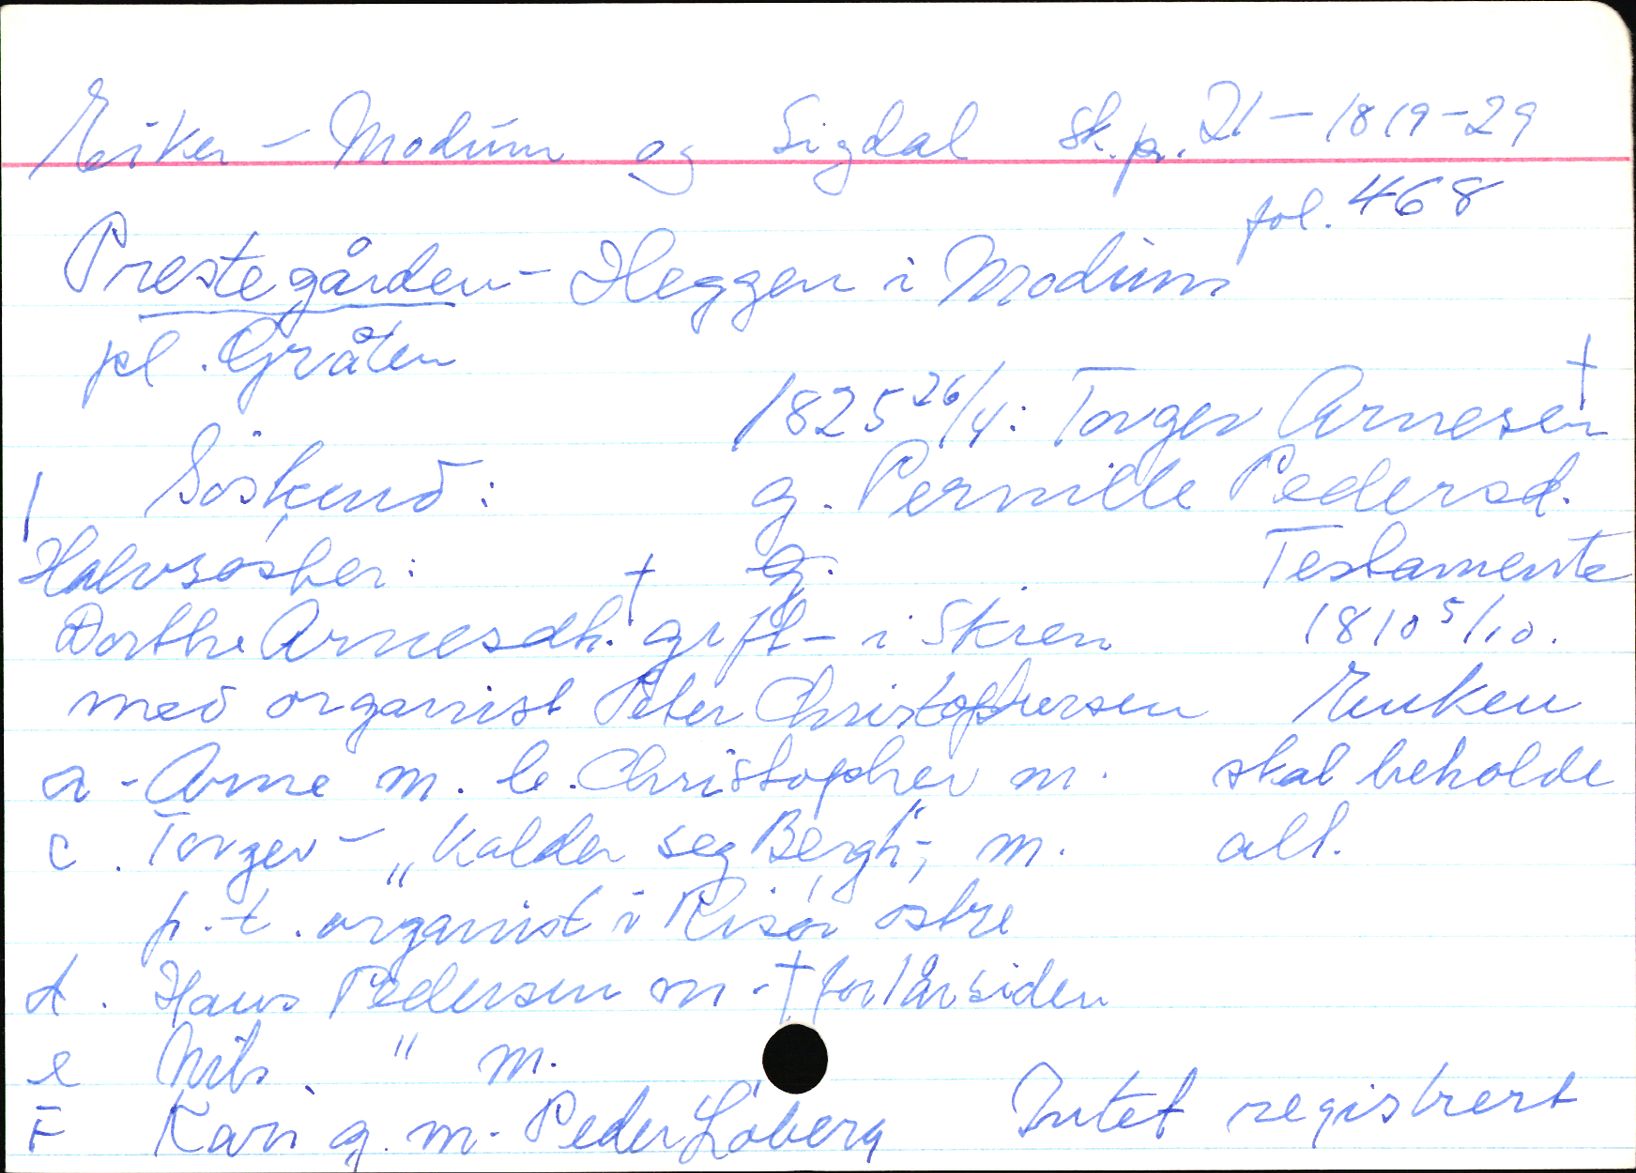 Eiker - Modum og Sigdal sk.pr. 21 - 1819-29
fol. 468
Prestegården - Heggen i Modum
pl. Gråten
1825 26/4: Torger Arnesen †
g. Pernille Pedersd.
1 Söskend:
Halvsøster:
Testamente
1810 5/10.
Enken
skal beholde
alt.
Dorthe Arnesdt. † grft - i Skien
med organist Peter Christophersen
a - Arne m. b. Christopher m.
c. Torger - „Kalder seg Bergh", m.
p.t. organist i Risør østre
d. Hans Pedersen m. - † for 1 år siden
e Nils " m.
F Kari g. m. Peder Löberg
Intet registrert